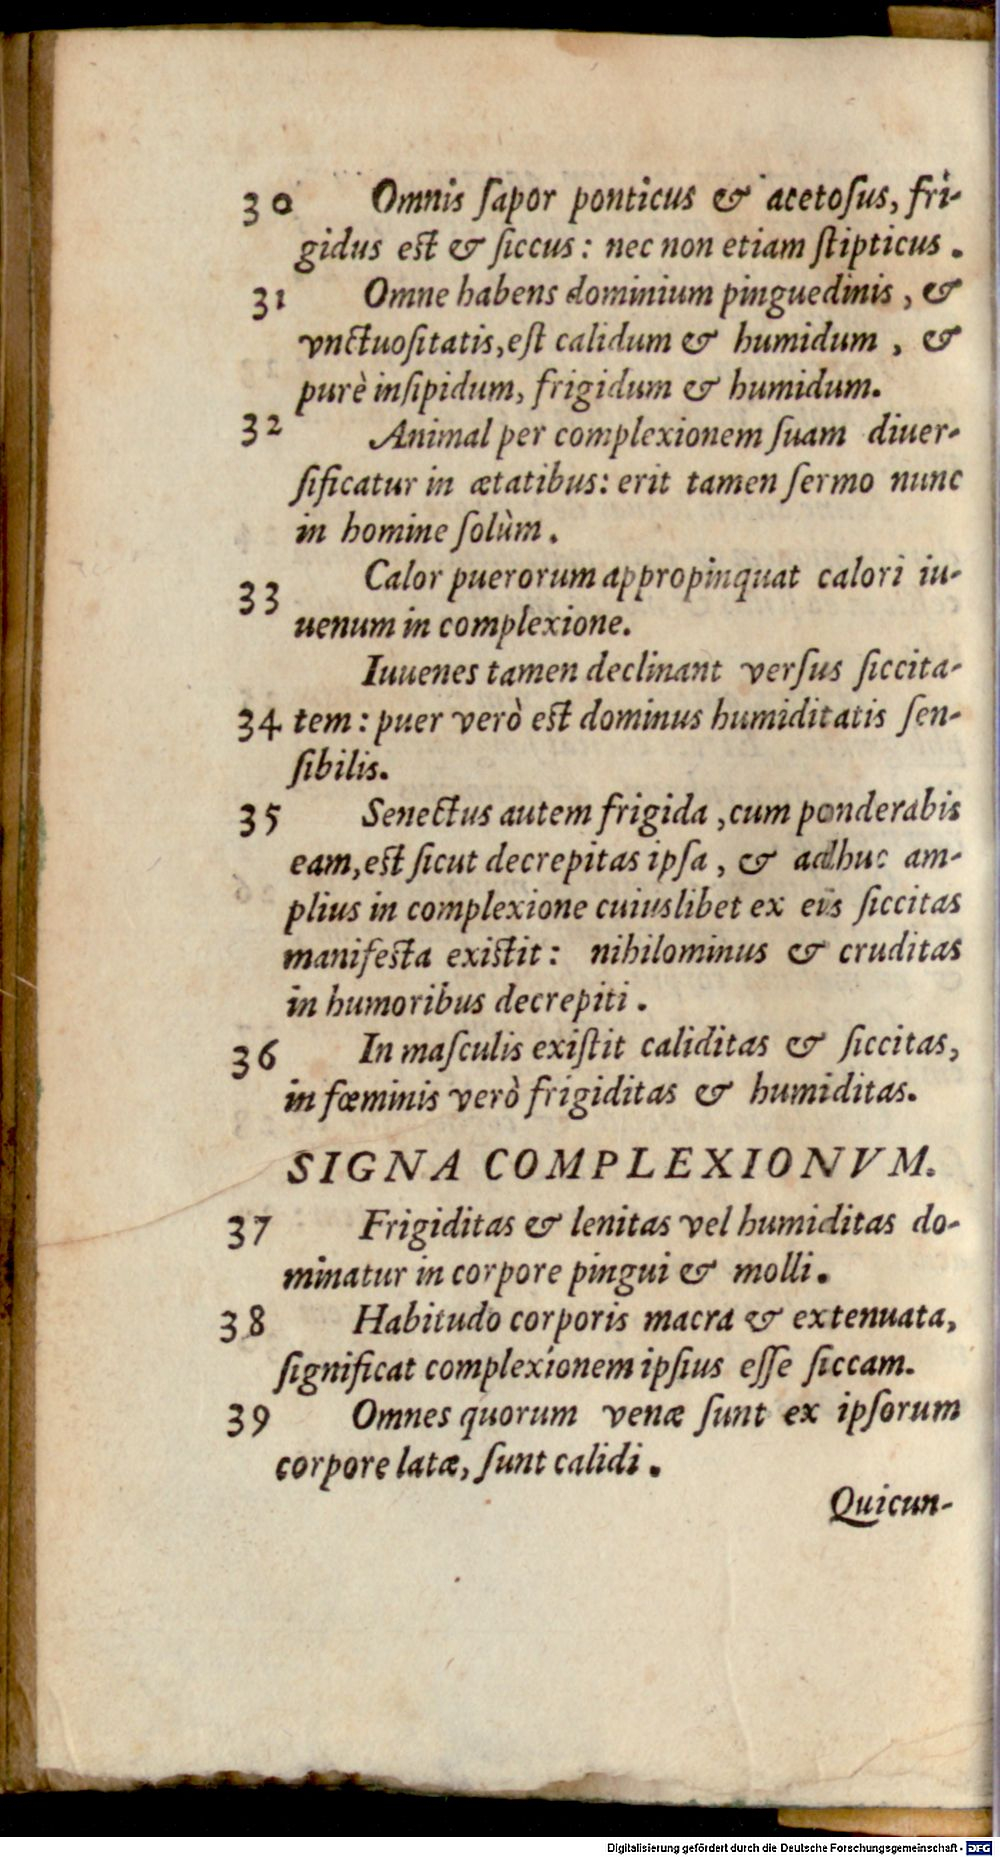 30 Omnis ſapor ponticus & acetoſus, fri-
gidus eſt & ſiccus: nec non etiam ſtipticus.
31 Omne habens dominium pinguedinis, &
vnctuoſitatis, eſt calidum & humidum, &
purè inſipidum, frigidum & humidum.
32 Animal per complexionem ſuam diuer-
ſificatur in ætatibus: erit tamen ſermo nunc
in homine ſolùm.
33 Calor puerorum appropinquat calori iu-
uenum in complexione.
Iuuenes tamen declinant verſus ſiccita-
34 tem: puer verò eſt dominus humiditatis ſen-
ſibilis.
35 Senectus autem frigida, cum ponderabis
eam, eſt ſicut decrepitas ipſa, & adhuc am-
plius in complexione cuiuslibet ex eis ſiccitas
manifeſta exiſtit: nihilominus & cruditas
in humoribus decrepiti.
36 In maſculis exiſtit caliditas & ſiccitas,
in fœminis verò frigiditas & humiditas.
SIGNA COMPLEXIONVM.
37 Frigiditas & lenitas vel humiditas do-
minatur in corpore pingui & molli.
38 Habitudo corporis macra & extenuata,
ſignificat complexionem ipſius eſſe ſiccam.
39 Omnes quorum venæ ſunt ex ipſorum
corpore latæ, ſunt calidi.
Quicun-
Digitalisierung gefördert durch die Deutsche Forschungsgemeinschaft - DFG